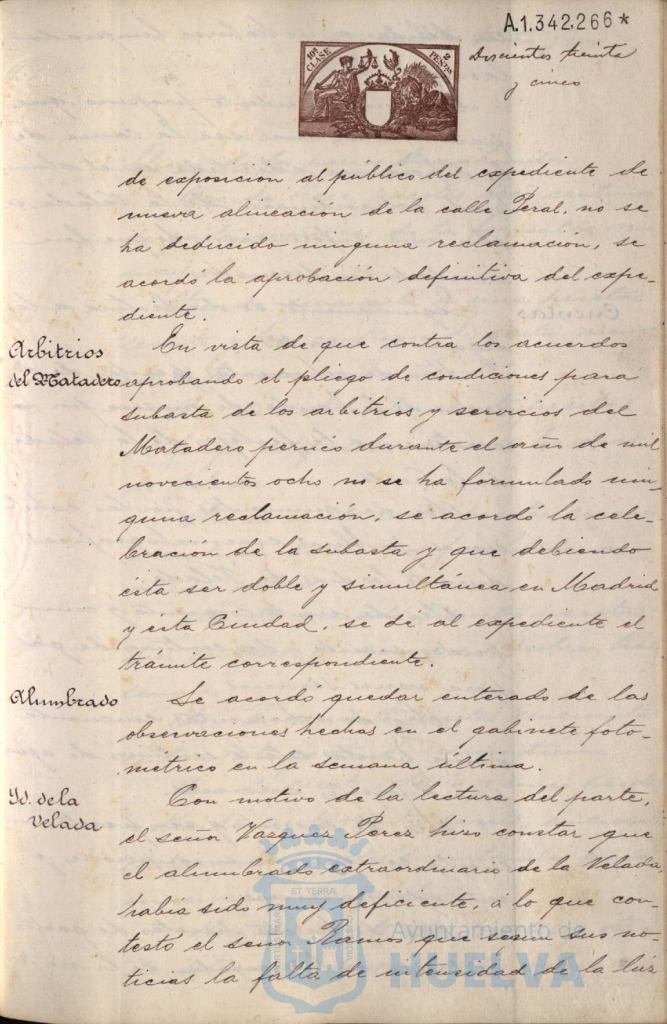 A.1.342.266*
10ª CLASE
2 PESETAS
Doscientos treinta
y cinco
de exposición al público del expediente de
nueva alineación de la calle Peral, no se
ha deducido ninguna reclamación, se
acordó la aprobación definitiva del expe-
diente.
Arbitrios
del Matadero
En vista de que contra los acuerdos
aprobando el pliego de condiciones para
subasta de los arbitrios y servicios del
Matadero pernico durante el año de mil
novecientos ocho no se ha formulado nin-
guna reclamación, se acordó la cele-
bración de la subasta y que debiendo
ésta ser doble y simultánea en Madrid
y ésta Ciudad, se dé al expediente el
trámite correspondiente.
Alumbrado
Se acordó quedar enterado de las
observaciones hechas en el gabinete foto-
métrico en la semana última.
Id. de la
Velada
Con motivo de la lectura del parte,
el señor Vazquez Perez hizo constar que
el alumbrado extraordinario de la Velada,
había sido muy deficiente, á lo que con-
testó el señor Ramos que segun sus no-
ticias la falta de intensidad de la luz
ET TERRÆ
Ayuntamiento de
HUELVA